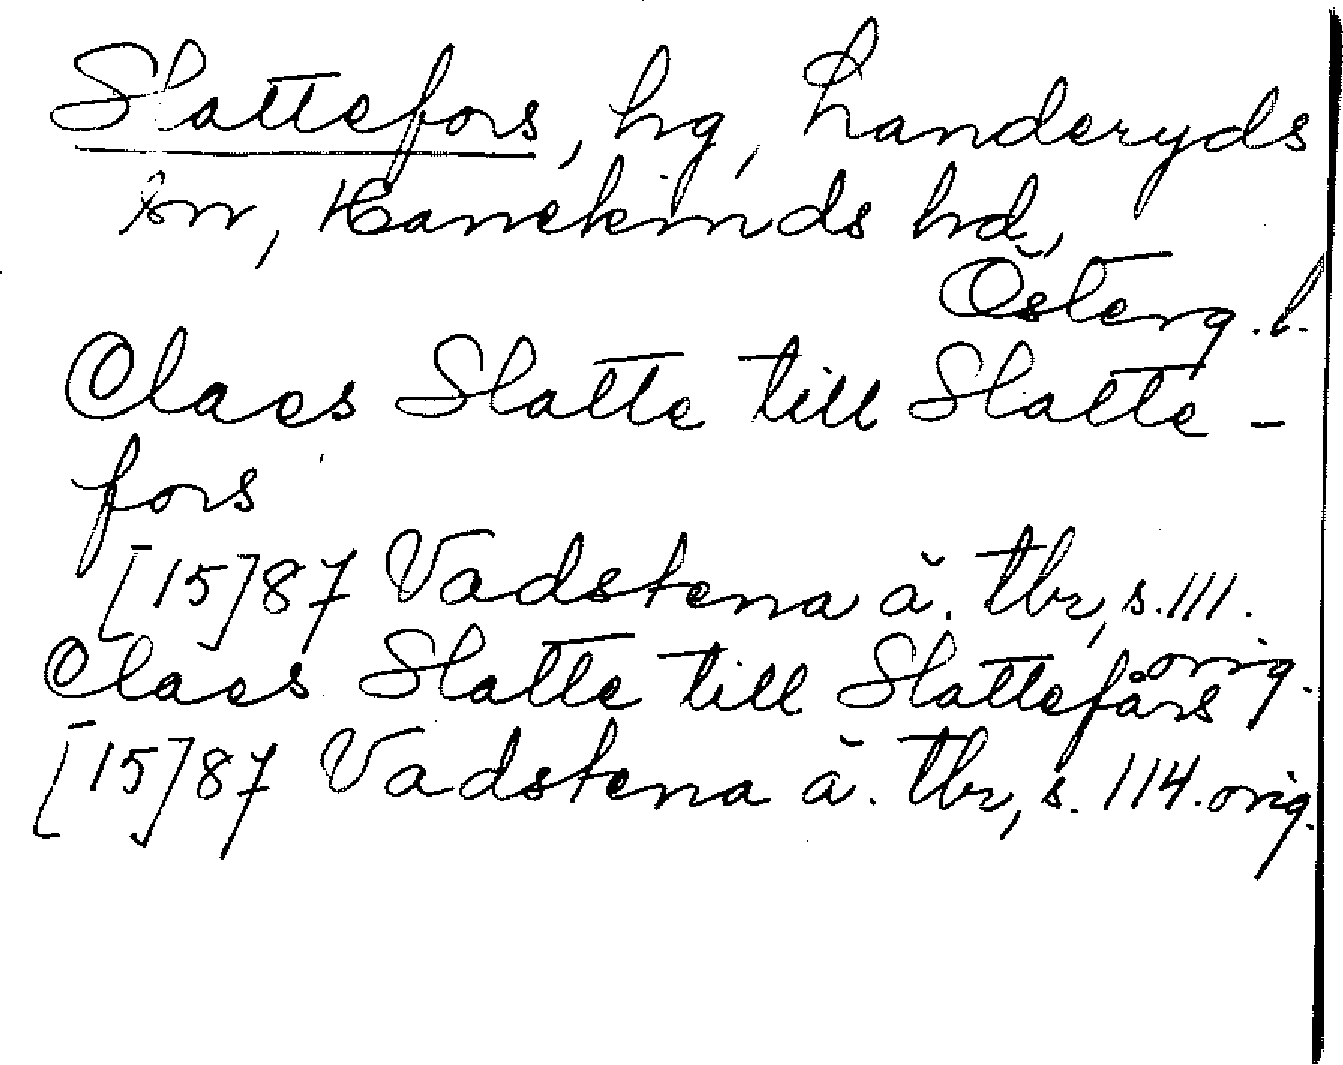 Slattefors, hg, Landeryds
sn, Hanekinds hd,
Österg. l.
Claes Slatte till Slatte-
fors
[15]87 Vadstena ä. tbr, s. 111.
orig.
Claes Slatte till Slattefårs
[15]87 Vadstena ä. tbr, s. 114. orig.